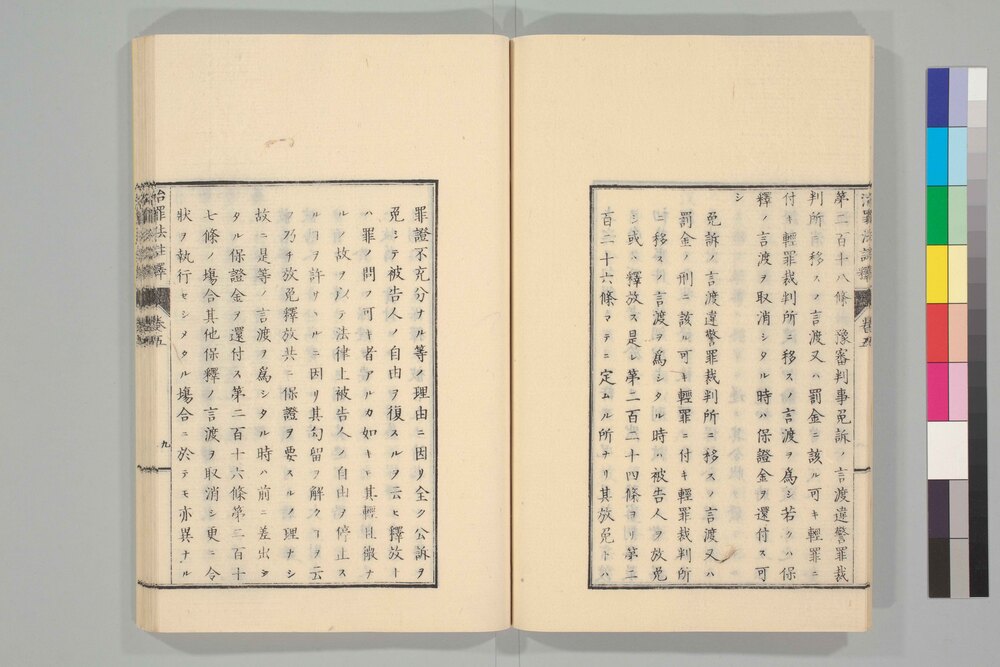 第二百十八條 豫審判事免訴ノ言渡違警罪裁
判所ニ移スノ言渡又ハ罰金ニ該ル可キ輕罪ニ
付キ輕罪裁判所ニ移スノ言渡ヲ爲シ若クハ保
釋ノ言渡ヲ取消シタル時ハ保證金ヲ還付ス可
シ
免訴ノ言渡違警罪裁判所ニ移スノ言渡又ハ
罰金ノ刑ニ該ル可キ輕罪ニ付キ輕罪裁判所
ニ移スノ言渡ヲ爲シタル時ハ被告人ヲ放免
シ或ハ釋放ス是レ第二百二十四條ヨリ第二
百二十六條マテニ定ムル所ナリ其放免トハ
罪證不充分ナル等ノ理由ニ因リ全ク公訴ヲ
免シテ被告人ノ自由ヲ復スルヲ云ヒ釋放ト
ハ罪ノ問フ可キ者アルカ如キモ其輕且微ナ
ルノ故ヲ以テ法律上被告人ノ自由ヲ停止ス
ルコヲ許サヽルニ因リ其勾留ヲ解クコヲ云
フ乃チ放免釋放共ニ保證ヲ要スルノ理ナシ
故ニ是等ノ言渡ヲ爲シタル時ハ前ニ差出シ
タル保證金ヲ還付ス第二百十六條第二百十
七條ノ塲合其他保釋ノ言渡ヲ取消シ更ニ令
狀ヲ執行セシメタル塲合ニ於テモ亦異ナル
治罪法註釋 卷五 九